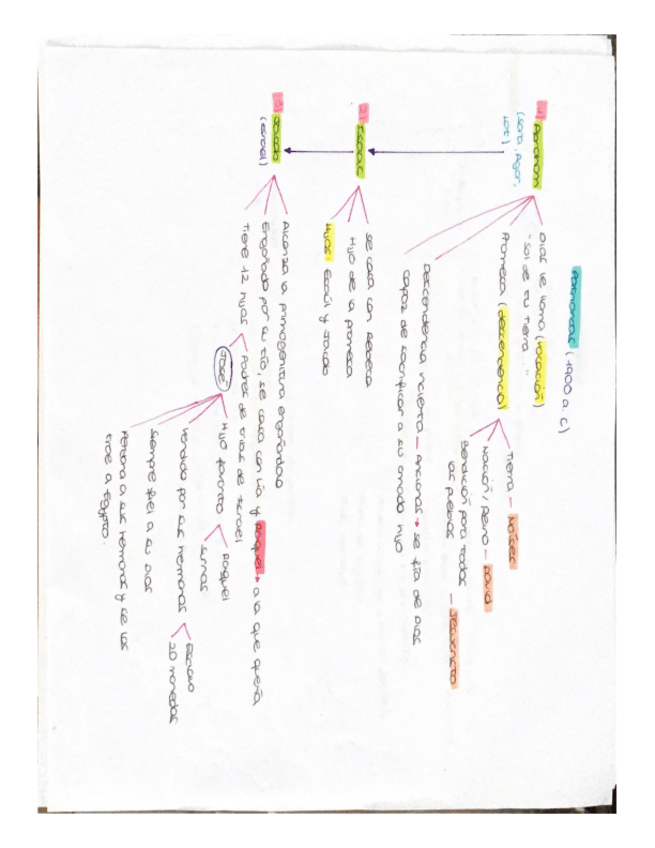 Patriarcas (1900 a.C)
1) Abraham
(Sara, Agar,
Lot)
Dios le llama (vocación)
"Sal de tu tierra..."
Promesa (descendencia)
Tierra — Moisés
Nación / Reino — David
Bendición para todos
los pueblos — Jesucristo
Descendencia incierta — Ancianos → se fía de Dios
capaz de sacrificar a su amado hijo
2) Isaac
Se casa con Rebeca
Hijo de la promesa
Hijos: Esaú y Jacob
3) Jacob
(Israel)
Alcanza la primogenitura engañando
Engañado por su tío, se casa con Lía y Raquel → a la que quería
Tiene 12 hijos < Padres de tribus de Israel
José
Hijo favorito < Raquel
Sueños
Vendido por sus hermanos < Esclavo
20 monedas
Siempre fiel a su Dios
Perdona a sus hermanos y se los
trae a Egipto.